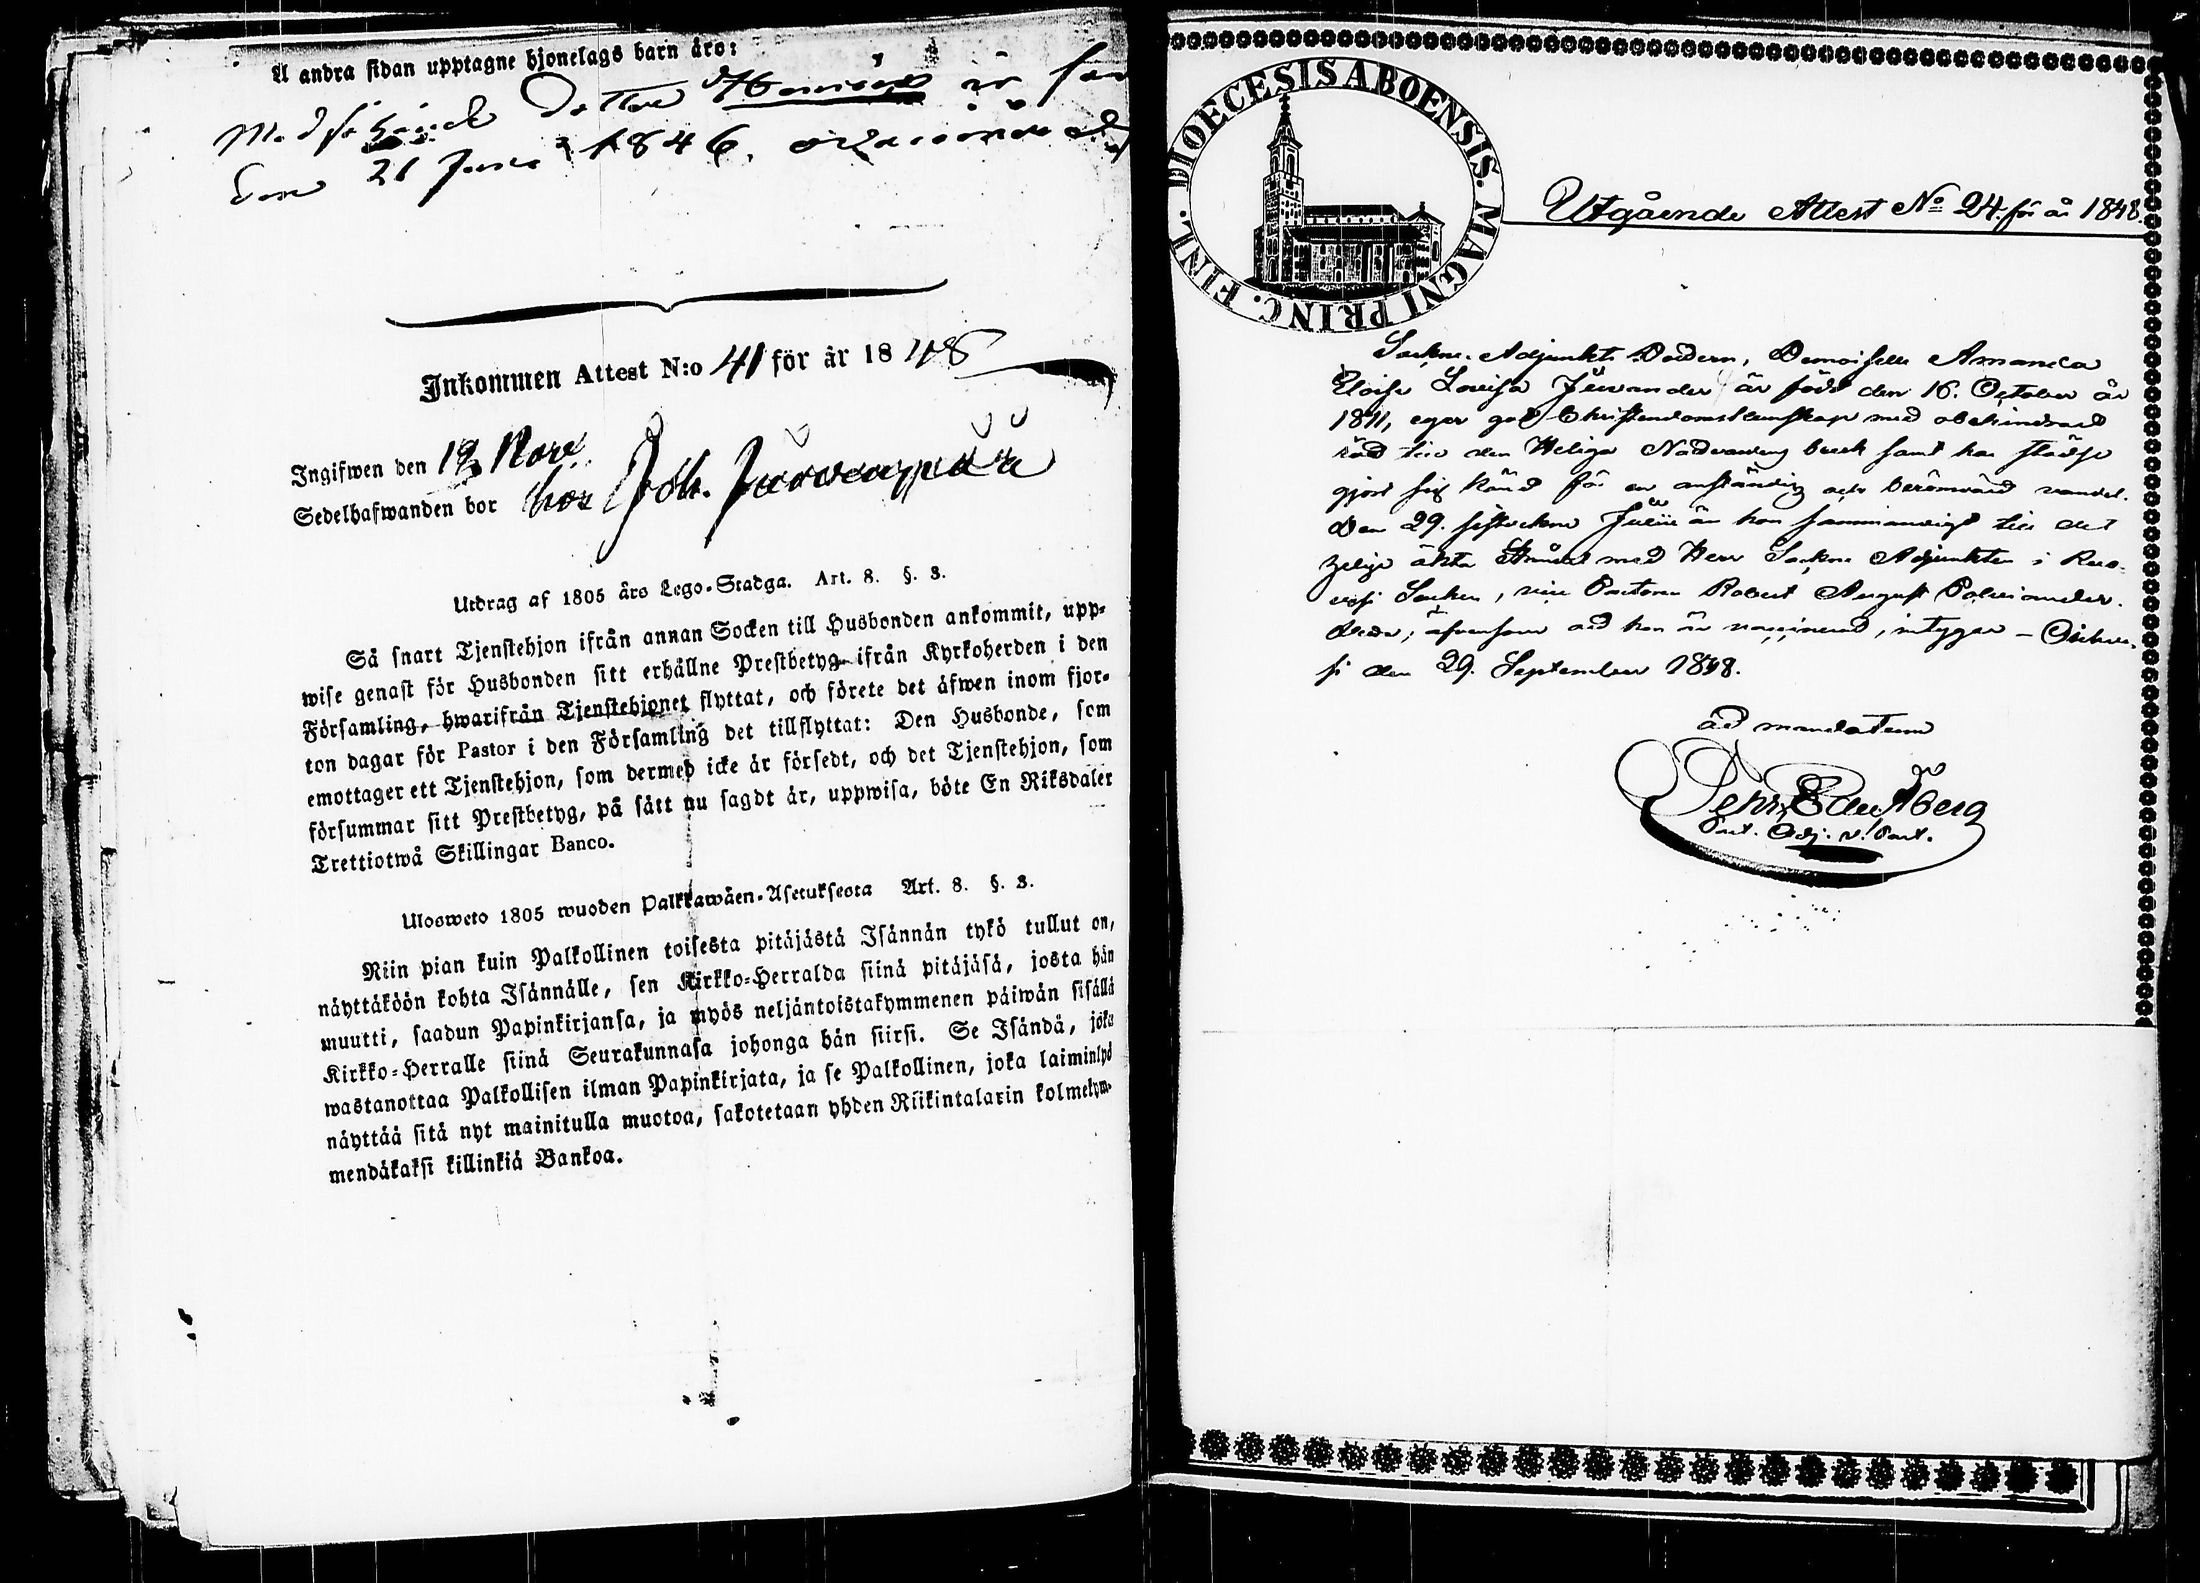 Å andra sidan upptagne hjonelags barn äro:
Dotter är
den 21 Juni 1846.
Inkommen Attest N:o 41 för år 1848
Ingifwen den 12 Nov.
Sedelhafwanden bor hos Joh. Järvenpää
Utdrag af 1805 års Lego-Stadga. Art. 8. §. 3.
Så snart Tjenstehjon ifrån annan Socken till Husbonden ankommit, upp-
wise genast för Husbonden sitt erhållne Prestbetyg ifrån Kyrkoherden i den
Församling, hwarifrån Tjenstehjonet flyttat, och förete det äfwen inom fjor-
ton dagar för Pastor i den Församling det tillflyttat: Den Husbonde, som
emottager ett Tjenstehjon, som dermed icke är försedt, och det Tjenstehjon, som
försummar sitt Prestbetyg, på sätt nu sagdt är, uppwisa, böte En Riksdaler
Trettiotwå Skillingar Banco.
Ulosweto 1805 wuoden Palkkawäen-Asetuksesta Art. 8. §. 3.
Niin pian kuin Palkollinen toisesta pitäjästä Isännän tykö tullut on,
näyttäköön kohta Isännälle, sen Kirkko-Herralda siinä pitäjäsä, josta hän
muutti, saadun Papinkirjansa, ja myös neljäntoistakymmenen päiwän sisällä
Kirkko-Herralle siinä Seurakunnasa johonga hän siirsi. Se Isändä, joka
wastanottaa Palkollisen ilman Papinkirjata, ja se Palkollinen, joka laiminlyö
näyttää sitä nyt mainitulla muotoa, sakotetaan yhden Riikintalarin kolmekym-
mendäkaksi killinkiä Bankoa.
DIOECESIS ABOENSIS. MAGNI PRINC. FINL.
Utgående Attest No 24. för år 1848.
Sockne-Adjunkts Dottern, Demoiselle Amanda
Lovisa är född den 16. October år
1811, eger god Christendomskunskap med obehindrad
den Heliga Nattvardens bruk samt har städse
gjort sig känd för en anständig och berömvärd vandel.
Den 29. sistledne Julii är hon sammanvigd till det
äkta med Herr Sockne Adjunkten i Ruo-
vesi Socken, vice Pastoren Robert August Polviander.
äfvensom att hon är vaccinerad, intygar –
si den 29. September 1848.
ad mandatum
Pehr
Past. Adj. v. Past.